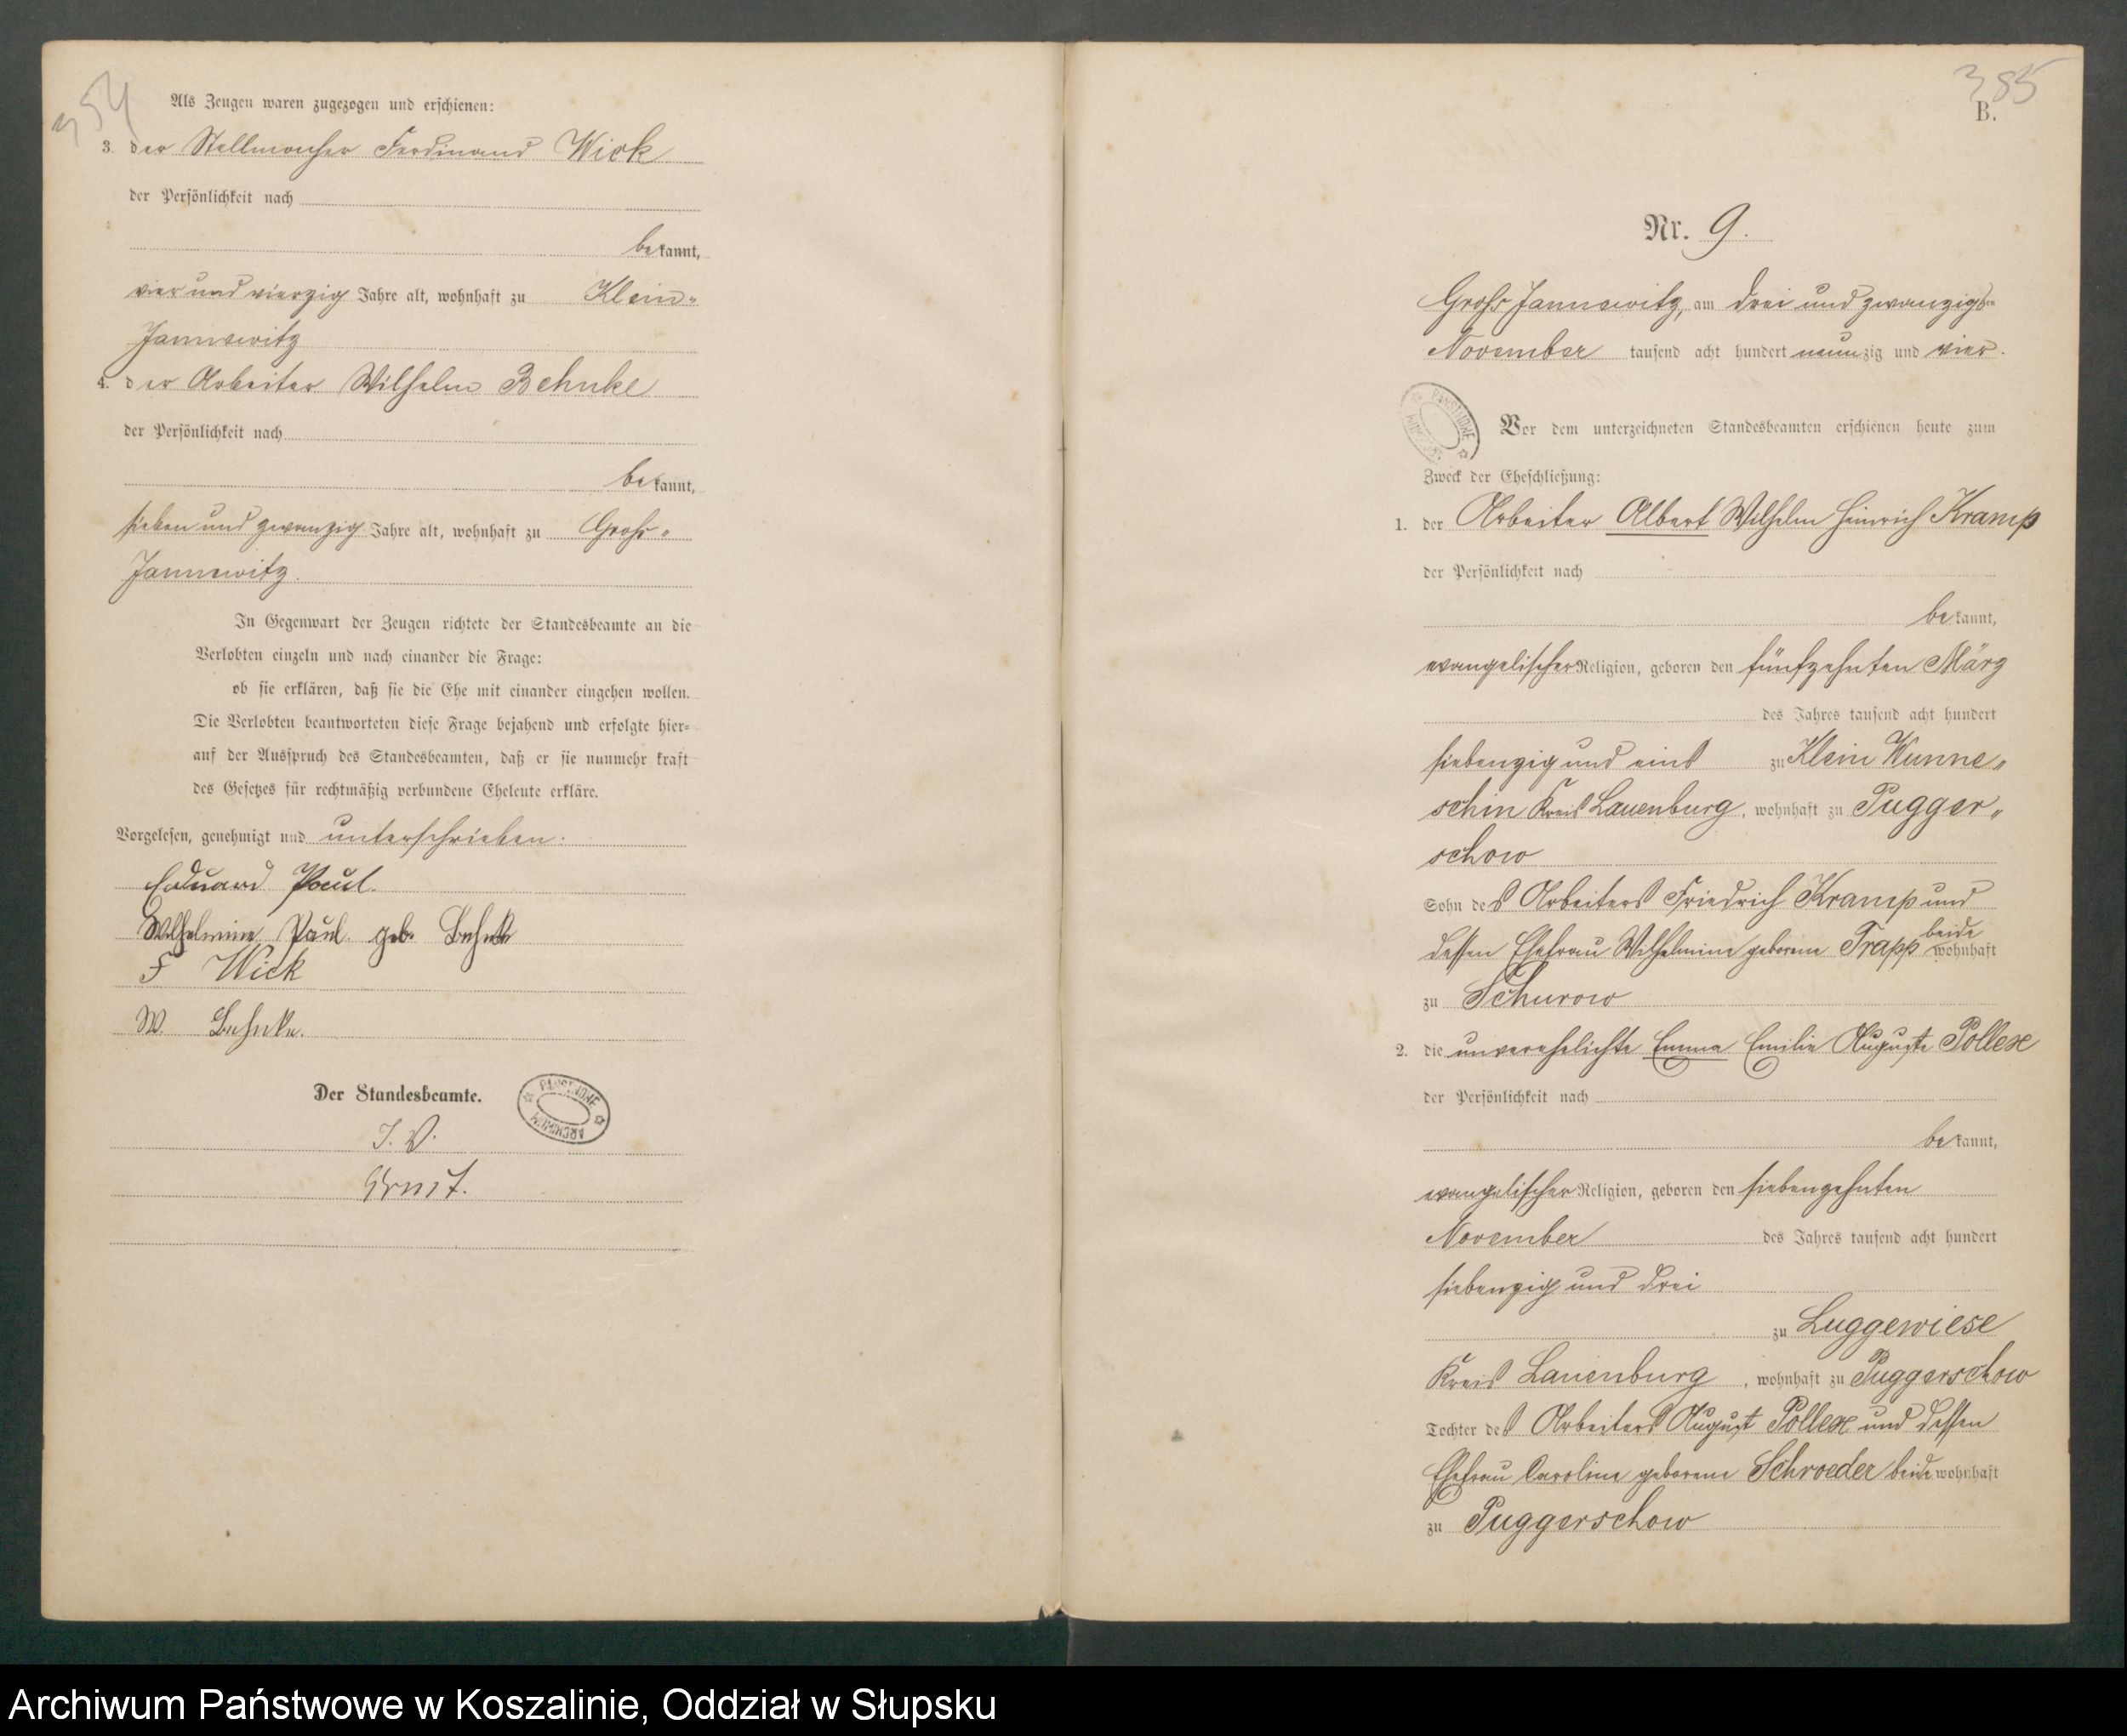 354
Als Zeugen waren zugezogen und erschienen:
3. der Stellmacher Ferdinand Wick
der Persönlichkeit nach
bekannt,
vier und vierzig Jahre alt, wohnhaft zu Klein-
Jannewitz
4. der Arbeiter Wilhelm Behnke
der Persönlichkeit nach
bekannt,
sieben und zwanzig Jahre alt, wohnhaft zu Groß-
Jannewitz.
In Gegenwart der Zeugen richtete der Standesbeamte an die
Verlobten einzeln und nach einander die Frage:
ob sie erklären, daß sie die Ehe mit einander eingehen wollen.
Die Verlobten beantworteten diese Frage bejahend und erfolgte hier-
auf der Ausspruch des Standesbeamten, daß er sie nunmehr kraft
des Gesetzes für rechtmäßig verbundene Eheleute erkläre.
Vorgelesen, genehmigt und unterschrieben:
Eduard Paul.
Wilhelmine Paul geb. Behnke
F Wick
W. Behnke.
Der Standesbeamte.
PAŃSTWOWE ARCHIWUM
I. V.
Ernst.
385
B.
Nr. 9.
Groß Jannewitz, am drei und zwanzigsten
November tausend acht hundert neunzig und vier.
PAŃSTWOWE ARCHIWUM
Vor dem unterzeichneten Standesbeamten erschienen heute zum
Zweck der Eheschließung:
1. der Arbeiter Albert Wilhelm Heinrich Kramp
der Persönlichkeit nach
bekannt,
evangelischer Religion, geboren den fünfzehnten März
des Jahres tausend acht hundert
siebenzig und eins zu Klein Wunne-
schin Kreis Lauenburg, wohnhaft zu Pugger-
schow
Sohn des Arbeiters Friedrich Kramp und
dessen Ehefrau Wilhelmine geborene Trapp beide wohnhaft
zu Schurow
2. die unverehelichte Emma Emilie Auguste Pollex
der Persönlichkeit nach
bekannt,
evangelischer Religion, geboren den siebenzehnten
November des Jahres tausend acht hundert
siebenzig und drei
zu Luggewiese
Kreis Lauenburg, wohnhaft zu Puggerschow
Tochter des Arbeiters August Pollex und dessen
Ehefrau Caroline geborene Schroeder beide wohnhaft
zu Puggerschow
Archiwum Państwowe w Koszalinie, Oddział w Słupsku